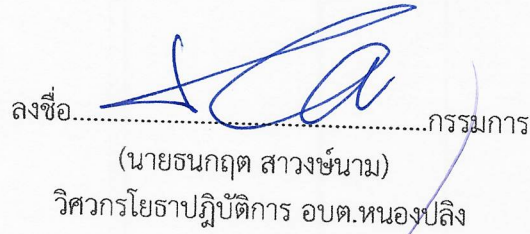 ลงชื่อ......................................................กรรมการ
(นายธนกฤต สาวงษ์นาม)
วิศวกรโยธาปฏิบัติการ อบต.หนองปลิง